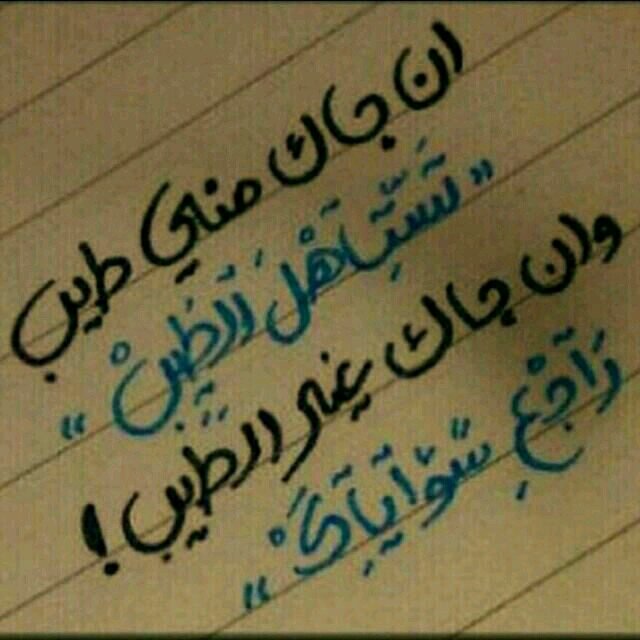 ان جاك مني طيب
"تستاهل الطيب"
وان جاك غير الطيب!
راجع سواياك"